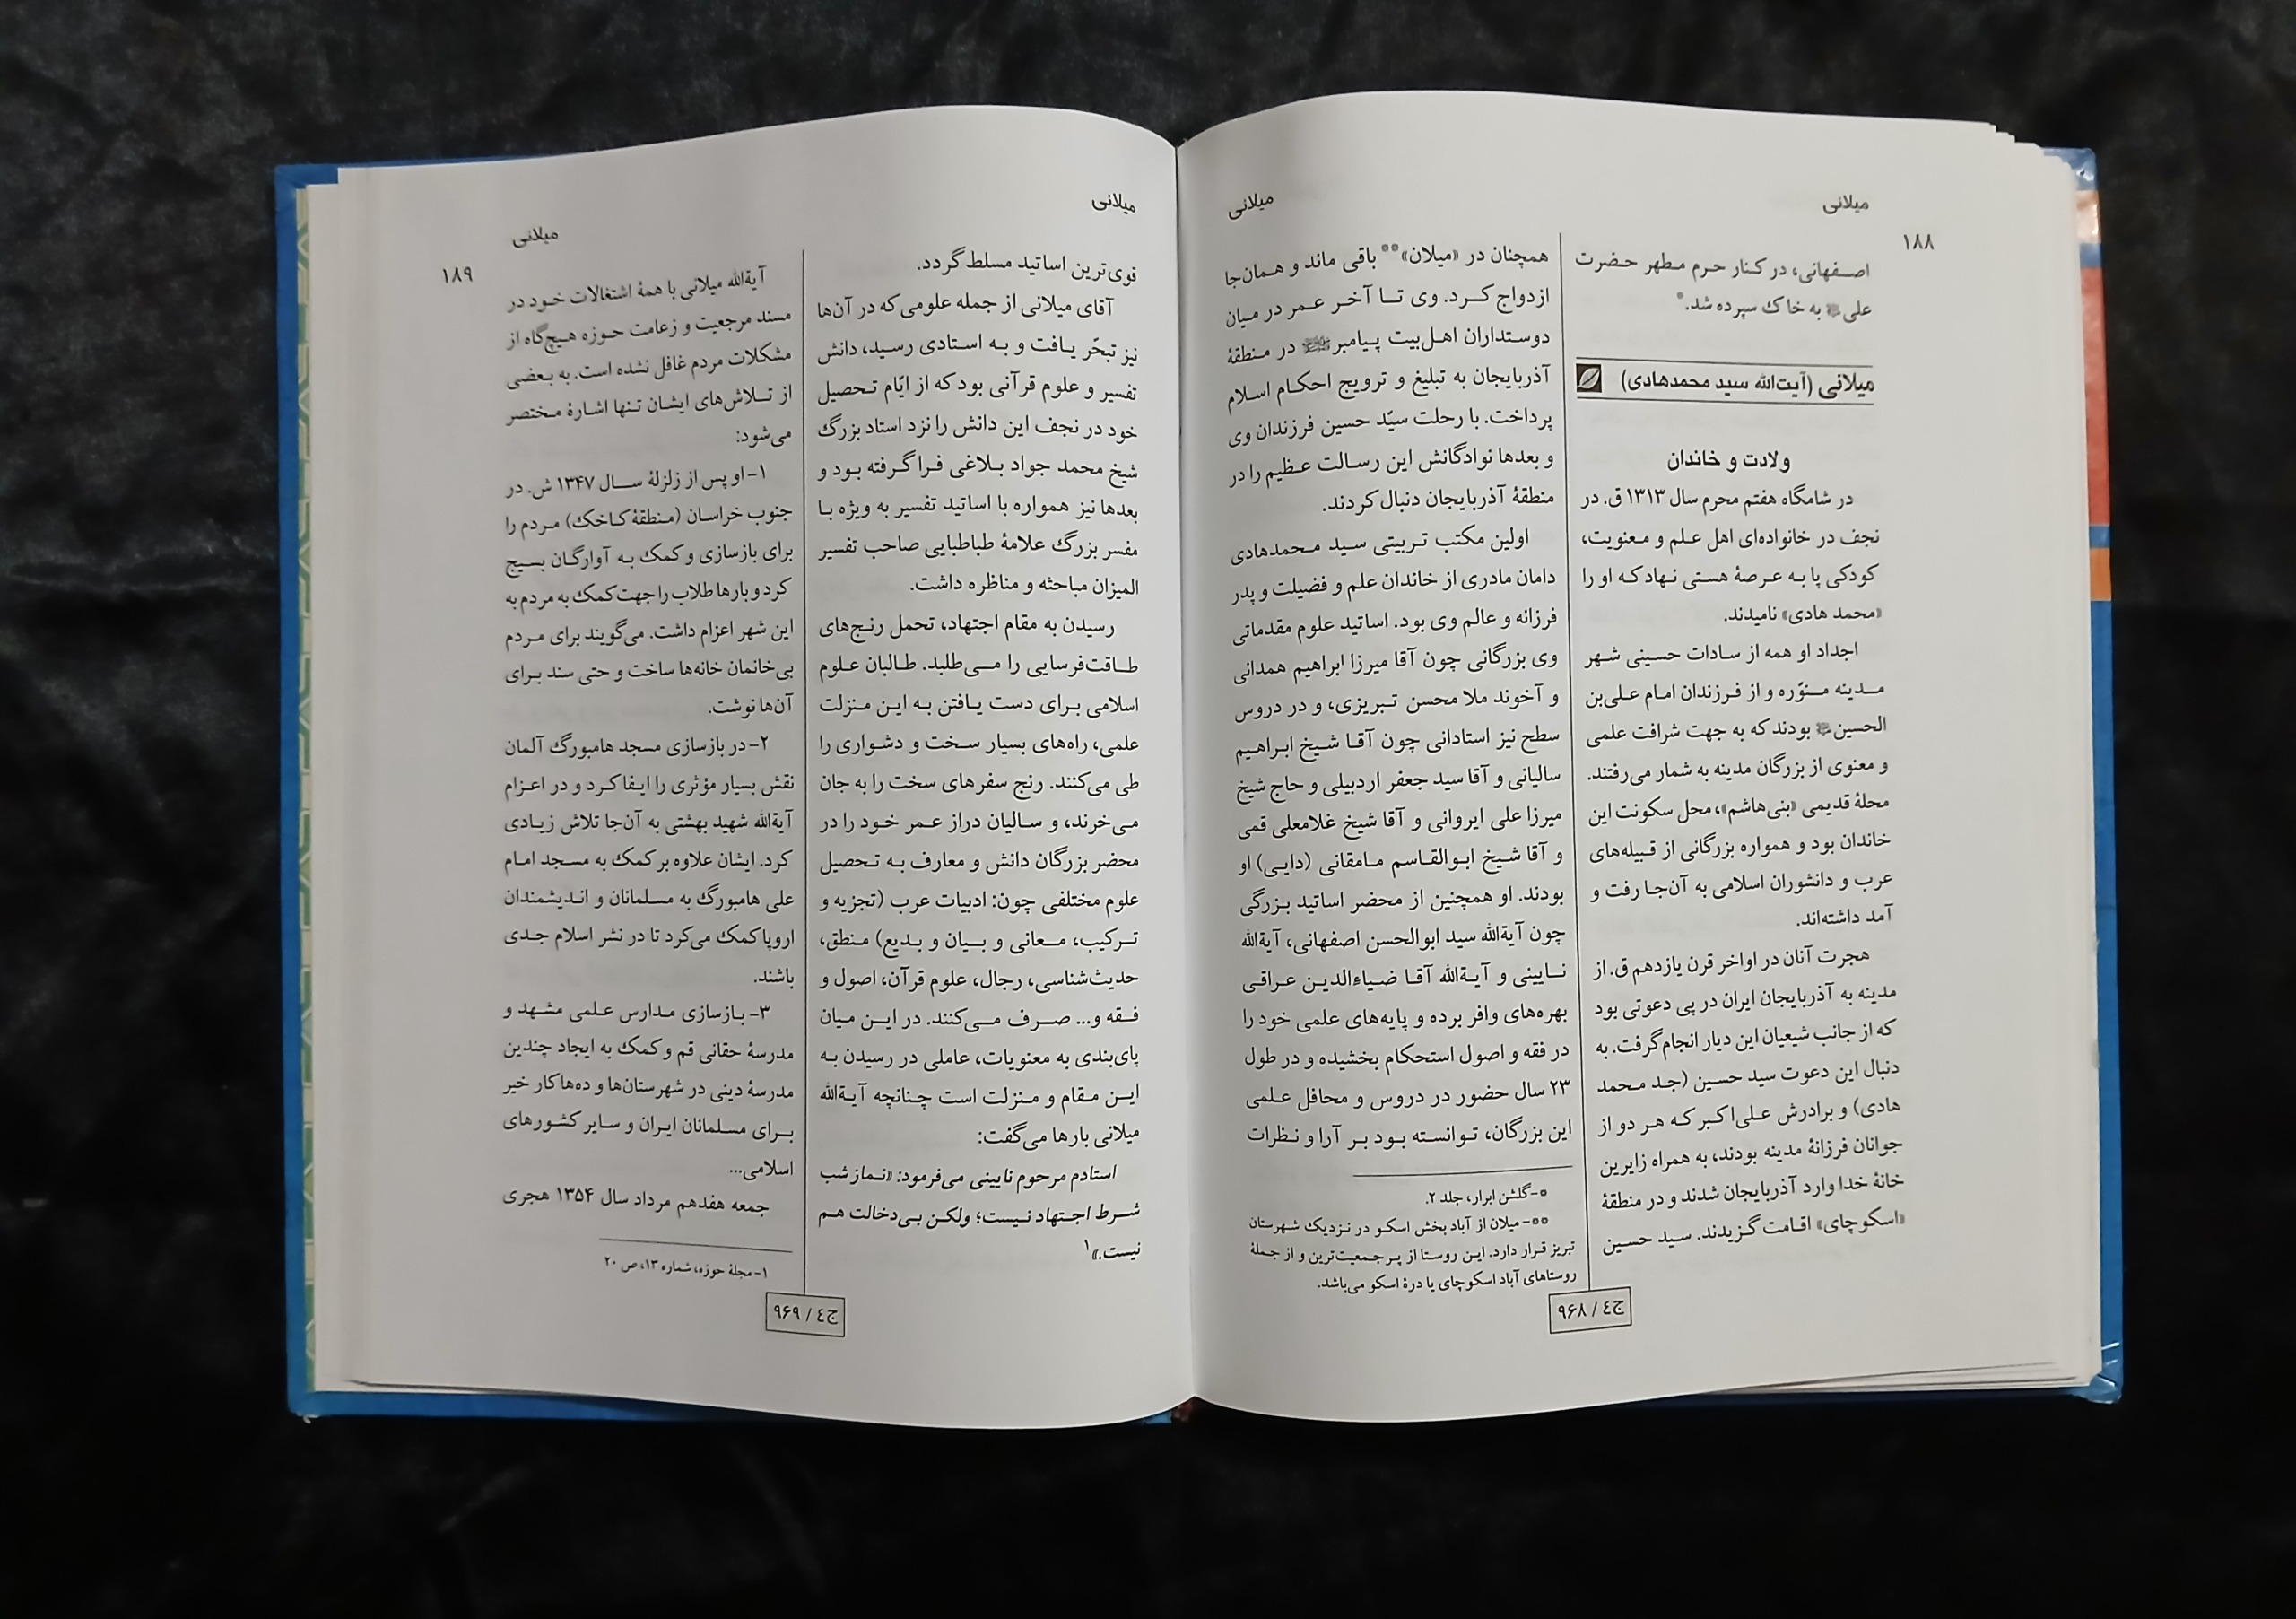 میلانی
میلانی
۱۸۸
اصفهانی، در کنار حرم مطهر حضرت
علی به خاک سپرده شد.*
میلانی (آیت‌الله سید محمدهادی)
ولادت و خاندان
در شامگاه هفتم محرم سال ۱۳۱۳ ق. در
نجف در خانواده‌ای اهل علم و معنویت،
کودکی پا به عرصهٔ هستی نهاد که او را
«محمد هادی» نامیدند.
اجداد او همه از سادات حسینی شهر
مدینه منوّره و از فرزندان امام علی‌بن
الحسین بودند که به جهت شرافت علمی
و معنوی از بزرگان مدینه به شمار می‌رفتند.
محلهٔ قدیمی «بنی‌هاشم»، محل سکونت این
خاندان بود و همواره بزرگانی از قبیله‌های
عرب و دانشوران اسلامی به آن‌جا رفت و
آمد داشته‌اند.
هجرت آنان در اواخر قرن یازدهم ق. از
مدینه به آذربایجان ایران در پی دعوتی بود
که از جانب شیعیان این دیار انجام گرفت. به
دنبال این دعوت سید حسین (جد محمد
هادی) و برادرش علی‌اکبر که هر دو از
جوانان فرزانهٔ مدینه بودند، به همراه زایرین
خانهٔ خدا وارد آذربایجان شدند و در منطقهٔ
«اسکوچای» اقامت گزیدند. سید حسین
همچنان در «میلان»** باقی ماند و همان‌جا
ازدواج کرد. وی تا آخر عمر در میان
دوستداران اهل‌بیت پیامبرﷺ در منطقهٔ
آذربایجان به تبلیغ و ترویج احکام اسلام
پرداخت. با رحلت سیّد حسین فرزندان وی
و بعدها نوادگانش این رسالت عظیم را در
منطقهٔ آذربایجان دنبال کردند.
اولین مکتب تربیتی سید محمدهادی
دامان مادری از خاندان علم و فضیلت و پدر
فرزانه و عالم وی بود. اساتید علوم مقدماتی
وی بزرگانی چون آقا میرزا ابراهیم همدانی
و آخوند ملا محسن تبریزی، و در دروس
سطح نیز استادانی چون آقا شیخ ابراهیم
سالیانی و آقا سید جعفر اردبیلی و حاج شیخ
میرزا علی ایروانی و آقا شیخ غلامعلی قمی
و آقا شیخ ابوالقاسم مامقانی (دایی) او
بودند. او همچنین از محضر اساتید بزرگی
چون آیةالله سید ابوالحسن اصفهانی، آیةالله
نایینی و آیةالله آقا ضیاءالدین عراقی
بهره‌های وافر برده و پایه‌های علمی خود را
در فقه و اصول استحکام بخشیده و در طول
۲۳ سال حضور در دروس و محافل علمی
این بزرگان، توانسته بود بر آرا و نظرات
*-گلشن ابرار، جلد ۲.
**- میلان از آباد بخش اسکو در نزدیک شهرستان
تبریز قرار دارد. این روستا از پرجمعیت‌ترین و از جملهٔ
روستاهای آباد اسکوچای یا درهٔ اسکو می‌باشد.
ج٤ / ۹۶۸
میلانی
میلانی
۱۸۹
قوی‌ترین اساتید مسلط گردد.
آقای میلانی از جمله علومی که در آن‌ها
نیز تبحّر یافت و به استادی رسید، دانش
تفسیر و علوم قرآنی بود که از ایّام تحصیل
خود در نجف این دانش را نزد استاد بزرگ
شیخ محمد جواد بلاغی فرا گرفته بود و
بعدها نیز همواره با اساتید تفسیر به ویژه با
مفسر بزرگ علامهٔ طباطبایی صاحب تفسیر
المیزان مباحثه و مناظره داشت.
رسیدن به مقام اجتهاد، تحمل رنج‌های
طاقت‌فرسایی را می‌طلبد. طالبان علوم
اسلامی برای دست یافتن به این منزلت
علمی، راه‌های بسیار سخت و دشواری را
طی می‌کنند. رنج سفرهای سخت را به جان
می‌خرند، و سالیان دراز عمر خود را در
محضر بزرگان دانش و معارف به تحصیل
علوم مختلفی چون: ادبیات عرب (تجزیه و
ترکیب، معانی و بیان و بدیع) منطق،
حدیث‌شناسی، رجال، علوم قرآن، اصول و
فقه و... صرف می‌کنند. در این میان
پای‌بندی به معنویات، عاملی در رسیدن به
این مقام و منزلت است چنانچه آیةالله
میلانی بارها می‌گفت:
استادم مرحوم نایینی می‌فرمود: «نماز شب
شرط اجتهاد نیست؛ ولکن بی‌دخالت هم
نیست.»۱
آیةالله میلانی با همهٔ اشتغالات خود در
مسند مرجعیت و زعامت حوزه هیچ‌گاه از
مشکلات مردم غافل نشده است. به بعضی
از تلاش‌های ایشان تنها اشارهٔ مختصر
می‌شود:
۱- او پس از زلزلهٔ سال ۱۳۴۷ ش. در
جنوب خراسان (منطقهٔ کاخک) مردم را
برای بازسازی و کمک به آوارگان بسیج
کرد و بارها طلاب را جهت کمک به مردم به
این شهر اعزام داشت. می‌گویند برای مردم
بی‌خانمان خانه‌ها ساخت و حتی سند برای
آن‌ها نوشت.
۲- در بازسازی مسجد هامبورگ آلمان
نقش بسیار مؤثری را ایفا کرد و در اعزام
آیةالله شهید بهشتی به آن‌جا تلاش زیادی
کرد. ایشان علاوه بر کمک به مسجد امام
علی هامبورگ به مسلمانان و اندیشمندان
اروپا کمک می‌کرد تا در نشر اسلام جدی
باشند.
۳- بازسازی مدارس علمی مشهد و
مدرسهٔ حقانی قم و کمک به ایجاد چندین
مدرسهٔ دینی در شهرستان‌ها و ده‌ها کار خیر
برای مسلمانان ایران و سایر کشورهای
اسلامی...
جمعه هفدهم مرداد سال ۱۳۵۴ هجری
۱- مجلهٔ حوزه، شماره ۱۳، ص ۲۰
ج٤ / ۹۶۹